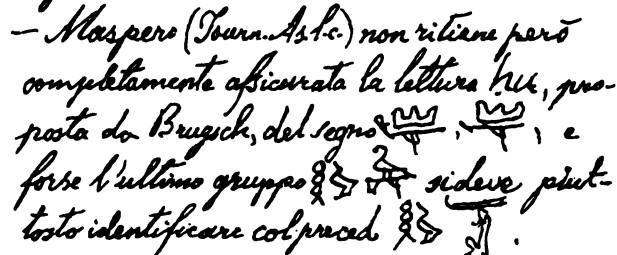 — Maspero (Journ. As. l. c.) non ritiene però
completamente assicurata la lettura ḥur, pro-
posta da Brugsch, del segno , , e
forse l'ultimo gruppo si deve piut-
tosto identificare col preced .